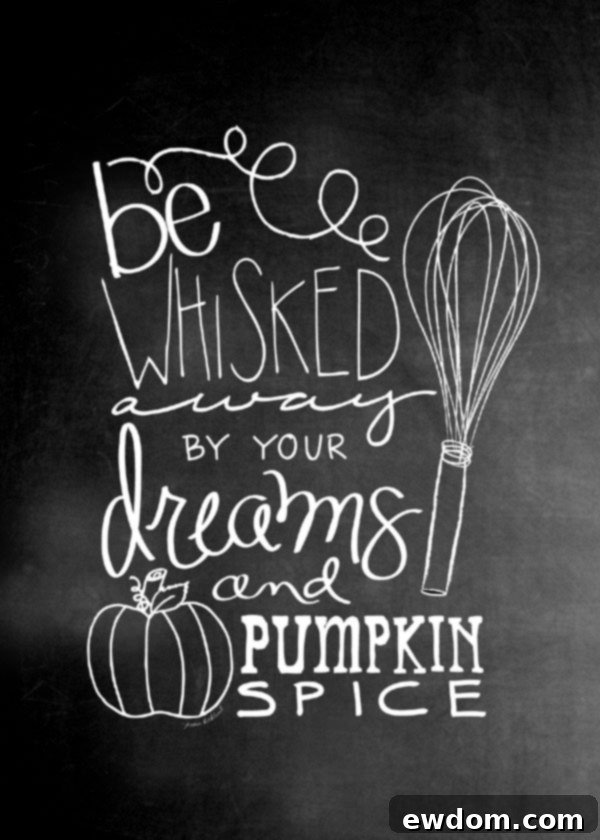 be
WHISKED
away
BY YOUR
dreams
and
PUMPKIN
SPICE
ewdom.com